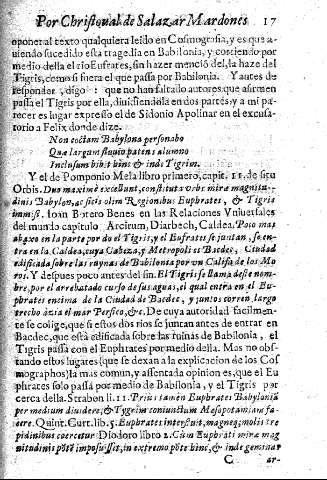 Por Christoual de Salazar Mardones 17
oponer al texto qualquiera leido en Cosmografia, y es que a-
uiendo sucedido esta tragedia en Babilonia, y corriendo por
medio della el rio Eufrates, sin hazer menciō del, la haze del
Tigris, como si fuera el que passa por Babilonia. Y antes de
responder, digo: que no han faltado autores que afirmen
passa el Tigris por ella, diuidiendola en dos partes: y a mi pa-
recer es lugar expresso el de Sidonio Apolinar en el excusa-
torio a Felix donde dize.
Non coctam Babylona personabo
Quæ largum fluuio patens alumno
Inclusum bibit hinc & inde Tigrim.
Y el de Pomponio Mela libro primero, capit. 11. de situ
Orbis. Duo maximè excellunt, constituta vrbs miræ magnitu-
dinis Babylon, ac siccis olim Regionibus Euphrates, & Tigris
immissi. Ioan Botero Benes en las Relaciones Vniuersales
del mundo capitulo Arcirum, Diarbech, Caldea. Poco mas
abaxo en la parte por do el Tigris, y el Eufrates se juntan, se en-
tra en la Caldea, cuya Cabeza, y Metropoli es Bacdec, Ciudad
edificada sobre las ruynas de Babilonia por un Califa de los Mo
ros. Y despues poco antes del fin. El Tigris se llama deste nom-
bre, por el arrebatado curso de sus aguas, el qual entra en el Eu-
phrates encima de la Ciudad de Bacdec, y juntos corren largo
trecho àzia el mar Persico, &c. De cuya autoridad facilmen-
te se colige, que si estos dos rios se juntan antes de entrar en
Bacdec, que està edificada sobre las ruinas de Babilonia, el
Tigris passà con el Euphrates por medio della. Mas no obs-
tando estos lugares (que se dexan a la explicacion de los Cos
mographos) la mas comun, y assentada opinion es, que el Eu
phrates solo passà por medio de Babilonia, y el Tigris por
cerca della. Strabon li. 11. Prius tamen Euphrates Babyloniã
per medium diuidere, & Tygrim coniunctum Mesopotamiam fa-
cere. Quint. Curt. lib. 5. Euphrates interfluit, magneq; molis tre
pidinibus coercetur Diodoro libro 2. Cùm Euphrati miræ mag
nitudinis põtē imposuisset, in extremo põte hinc, & inde geminar
C ar-